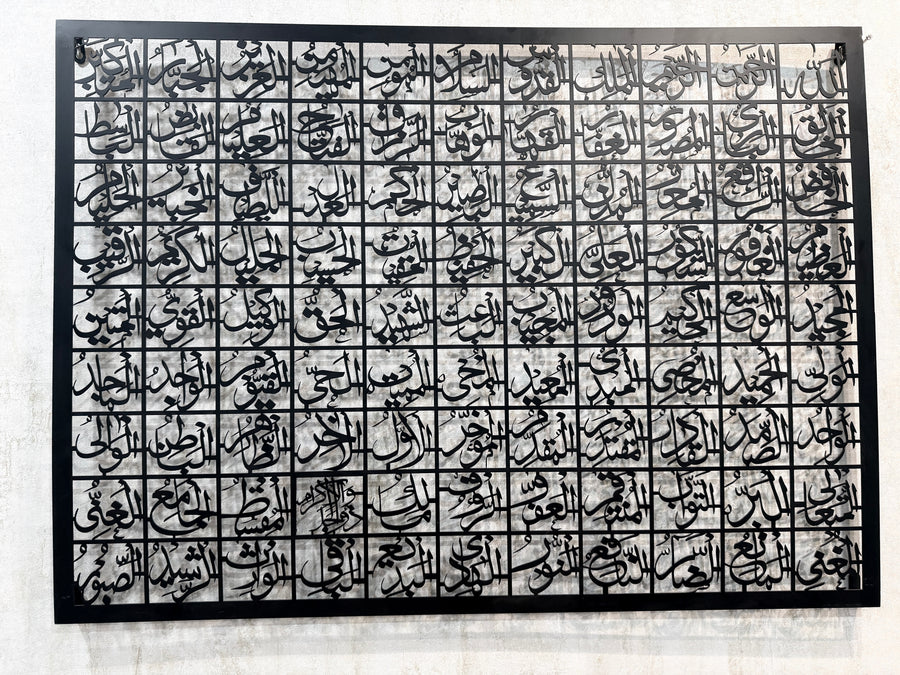 الله الرحمن الرحيم الملك القدوس السلام المؤمن المهيمن العزيز الجبار المتكبر
الخالق البارئ المصور الغفار القهار الوهاب الرزاق الفتاح العليم القابض الباسط
الخافض الرافع المعز المذل السميع البصير الحكم العدل اللطيف الخبير الحليم
العظيم الغفور الشكور العلي الكبير الحفيظ المقيت الحسيب الجليل الكريم الرقيب
المجيد الواسع الحكيم الودود المجيب الباعث الشهيد الحق الوكيل القوي المتين
الولي الحميد المحصي المبدئ المعيد المحيي المميت الحي القيوم الواجد الماجد
الواحد الصمد القادر المقتدر المقدم المؤخر الأول الآخر الظاهر الباطن الوالي
المتعالي البر التواب المنتقم العفو الرؤوف مالك الملك ذو الجلال والإكرام المقسط الجامع الغني
المغني المانع الضار النافع النور الهادي البديع الباقي الوارث الرشيد الصبور